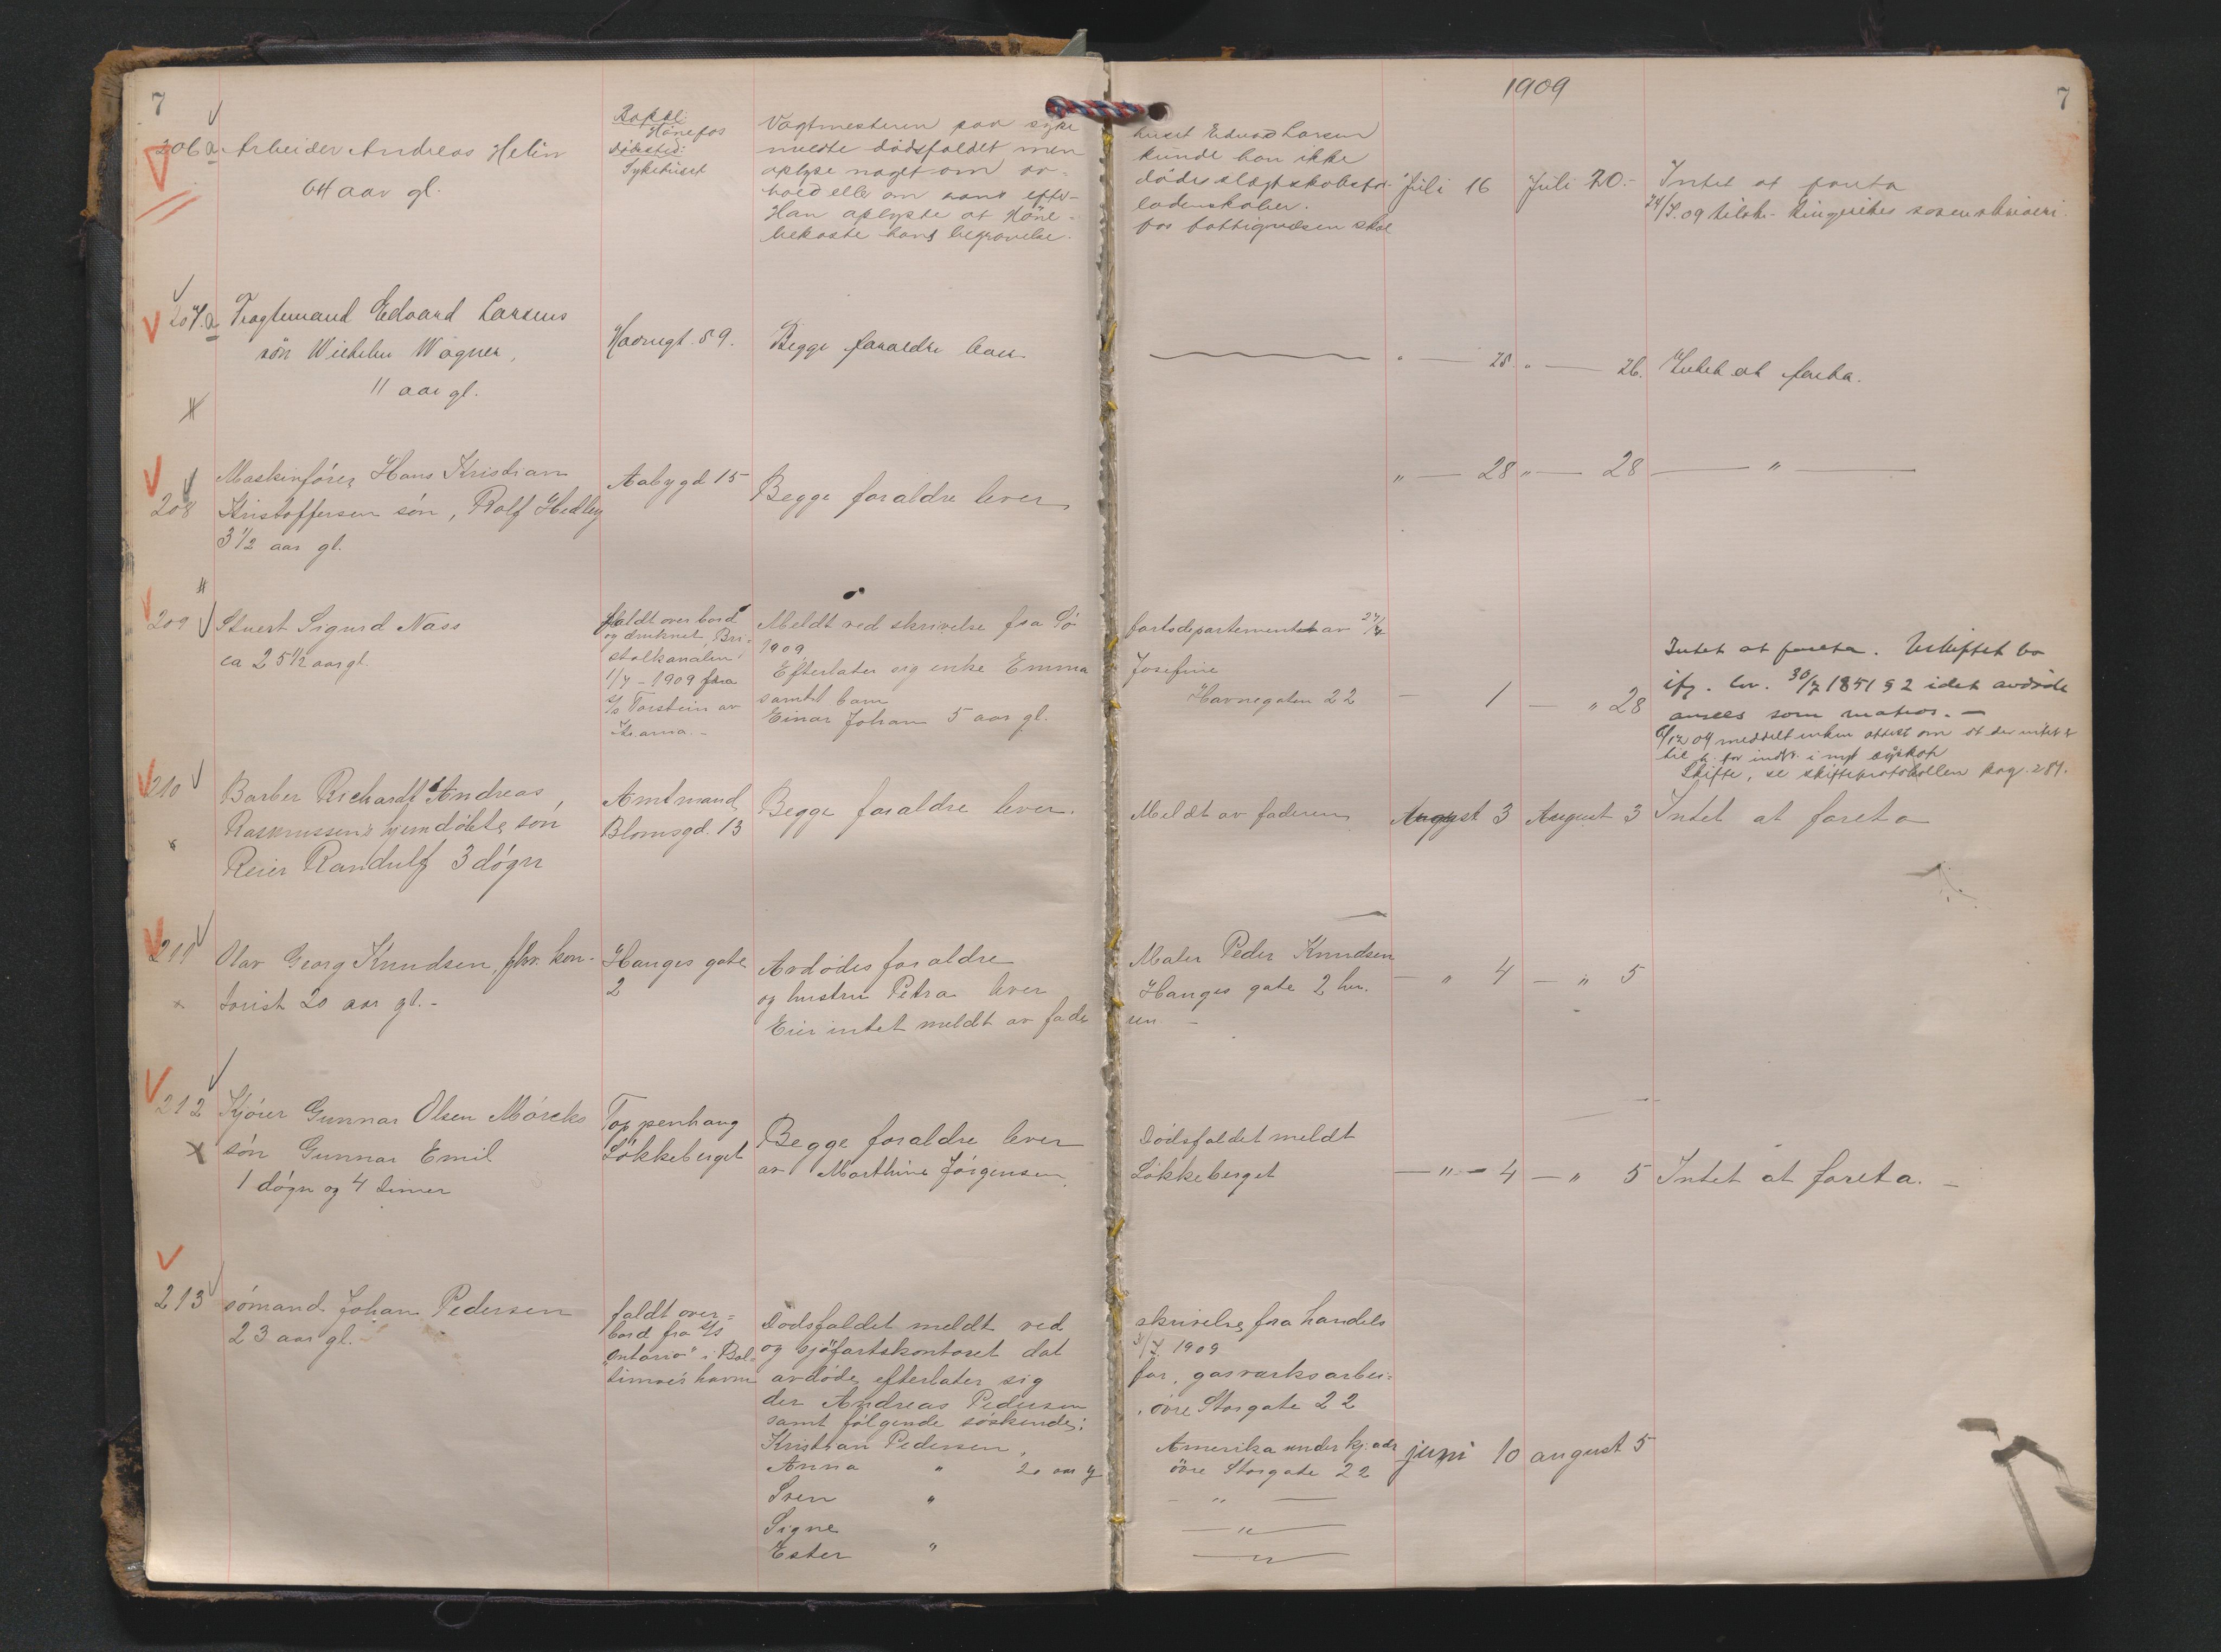 7
1909
7
206a Arbeider Andreas Helin
64 aar gl.
Bopæl:
Hönefos
Dödssted:
Sykehuset
Vagtmesteren paa syke huset Edvard Larsen
meldte dödsfaldet men kunde han ikke
oplyse noget om av= dödes slegtskabsfor-
hold eller om hans efter- ladenskaber.
Han oplyste at Höne- fos fattigvæsen skal
bekoste hans begravelse.
Juli 16 Juli 20.-
Intet at foreta
24/7.09 tilskr. Ringerikes sorenskriveri.
207.a Fragtemand Edvard Larsens
sön Wilhelm Wagner,
11 aar gl.
Havnegt. 59.
Begge foraldre lever
" — 25. " — 26. Intet at foreta.
208
Maskinförer Hans Kristian
Kristoffersen sön, Rolf Hedley
3 1/2 aar gl.
Aabygd 15
Begge foraldre lever
" — 28 " — 28 — " —
209 Stuert Sigurd Nass
ca 25 1/2 aar gl.
faldt over bord
og druknet Bri-
stolkanalen
1/7 - 1909 fra
s/s Torstein av
Kr.ania. -
Meldt ved skrivelse fra Sö fartsdepartementet av 27/7
1909
Efterlater sig enke Emma Josefine
Havnegaten 22
samt barn
Einar Johan 5 aar gl.
— 1 — " 28
Intet at foreta. Uskiftet bo
ifg. lov. 30/7 1851 § 2 idet avdøde
ansees som matros. —
6/12 09 meddelt enken attest om at der intet er
til h. for indtr. i uskiftet
Skifte, se skifteprotokollen pag. 281.
210 Barber Richardt Andreas
Rasmussens hjemdöbte sön
Reier Randulf 3 dögn
Amtmand
Blomsgd. 13
Begge foraldre lever.
Meldt av faderen
August 3 August 3 Intet at foreta
211 Olav Georg Knudsen, fhv. kon-
torist 20 aar gl. -
Hauges gate
2
Avdödes foraldre Maler Peder Knudsen
og hustru Petra lever Hauges gate 2 her.
Eier intet meldt av fade ren. -
— " 4 — " 5
212 Kjörer Gunnar Olsen Mörcks
sön Gunnar Emil
1 dögn og 4 timer
Toppenhaug
Lökkeberget
Begge foraldre lever Dödsfaldet meldt
av Marthine Jörgensen Lökkeberget
— " — 4 — " 5 Intet at foreta. -
213 sömand Johan Pedersen
23 aar gl.
faldt over=
bord fra s/s
"Ontario" i Bal=
timores havn
Dödsfaldet meldt ved skrivelse fra handels
og sjöfartskontoret dat 31/7. 1909
avdöde efterlater sig far, gasværksarbei=
der Andreas Pedersen, övre Storgate 22
samt fölgende söskende:
Kristian Pedersen, Amerika under kj. adr
Anna " 20 aar gl övre Storgate 22
Sven " - " —
Signe — " —
Ester " — " —
juni 10 august 5